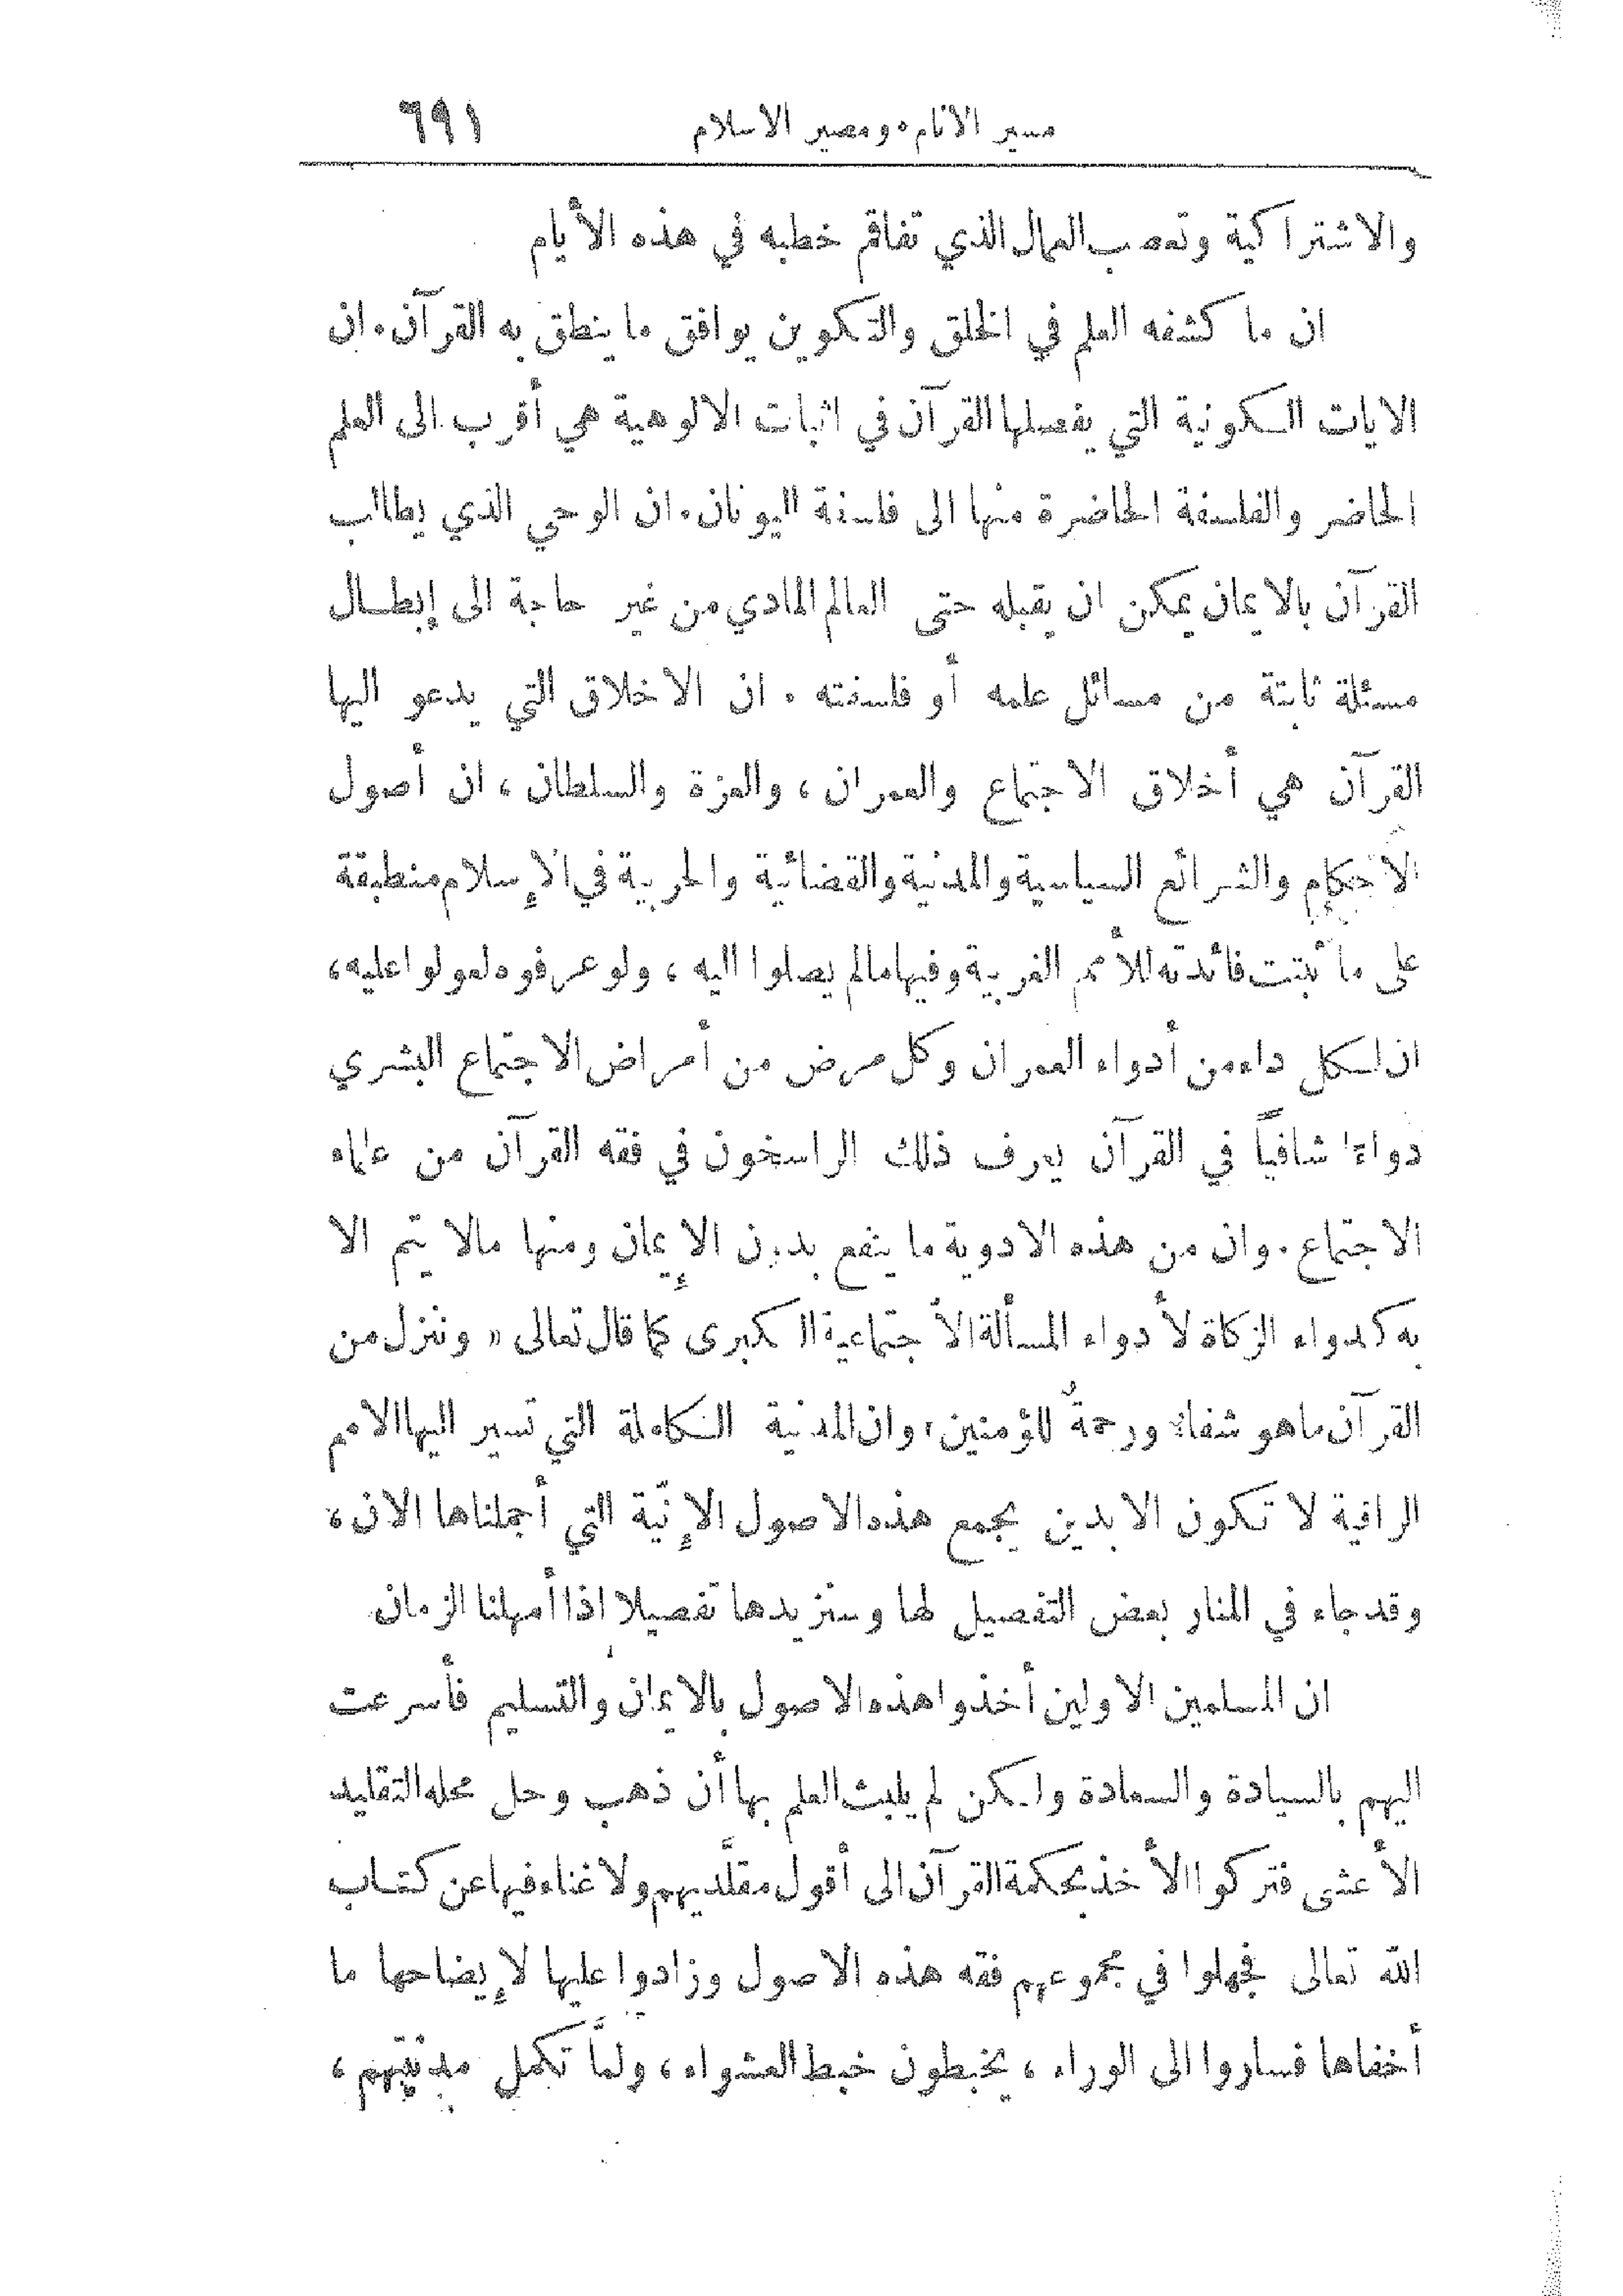 مسير الانام. ومصير الاسلام ٦٩١
والاشتراكية وتعصب العمال الذي تفاقم خطبه في هذه الأيام
ان ما كشفه العلم في الخلق والتكوين يوافق ما ينطق به القرآن. ان
الايات الكونية التي يفصلها القرآن في اثبات الالوهية هي أقرب الى العلم
الحاضر والفلسفة الحاضرة منها الى فلسفة اليونان. ان الوحي الذي يطالب
القرآن بالايمان يمكن ان يقبله حتى العالم المادي من غير حاجة الى إبطال
مسئلة ثابتة من مسائل علمه أو فلسفته . ان الاخلاق التي يدعو اليها
القرآن هي أخلاق الاجتماع والعمران ، والعزة والسلطان ، ان أصول
الاحكام والشرائع السياسية والمدنية والقضائية والحربية في الإسلام منطبقة
على ما ثبتت فائدته للأمم الغربية وفيها مالم يصلوا اليه ، ولو عرفوه لعولوا عليه ،
ان لكل داء من أدواء العمران وكل مرض من أمراض الاجتماع البشري
دواءً شافياً في القرآن يعرف ذلك الراسخون في فقه القرآن من علماء
الاجتماع . وان من هذه الادوية ما ينفع بدون الإيمان ومنها مالا يتم الا
به كدواء الزكاة لأدواء المسألة الأجتماعية الكبرى كما قال تعالى « وننزل من
القرآن ماهو شفاءٌ ورحمةٌ للمؤمنين، وان المدنية الكاملة التي تسير اليها الامم
الراقية لا تكون الا بدين يجمع هذه الاصول الإنّية التي أجملناها الان ،
وقد جاء في المنار بعض التفصيل لها وسنزيدها تفصيلا اذا أمهلنا الزمان
ان المسلمين الاولين أخذوا هذه الاصول بالايمان والتسليم فأسرعت
اليهم بالسيادة والسعادة ولكن لم يلبث العلم بها أن ذهب وحل محله التقليد
الأعشى فتركوا الأخذ بحكمة القرآن الى أقول مقلَّديهم ولا غناء فيها عن كتاب
الله تعالى فجهلوا في مجموعهم فقه هذه الاصول وزادوا عليها لإيضاحها ما
أخفاها فساروا الى الوراء ، يخبطون خبط العشواء ، ولمَّا تكمل مدنيتهم ،